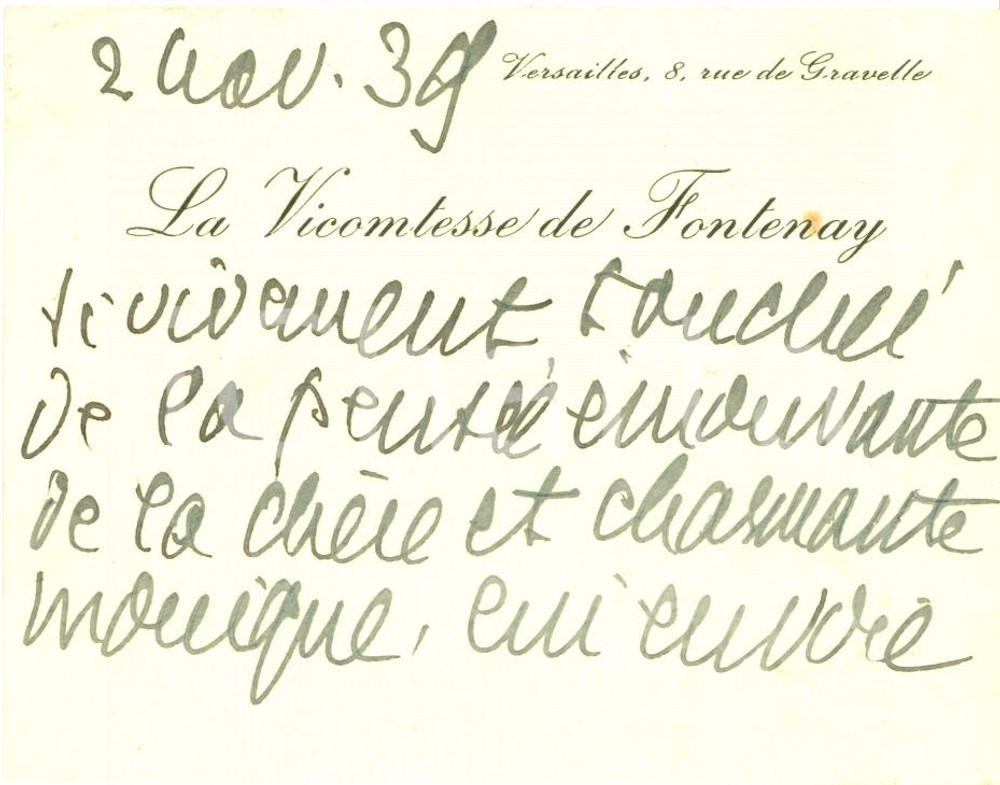 2 nov. 39 Versailles, 8, rue de Gravelle
La Vicomtesse de Fontenay
si vivement touchée
de la pensée émouvante
de la chère et charmante
monique, lui envoie